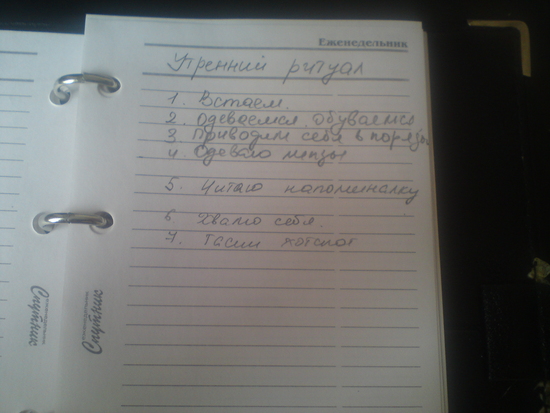 Еженедельник
Утренний ритуал
1. Встаем.
2. одеваемся, обуваемся
3. Приводим себя в поряд
4. Одеваю линзы
5. Читаю напоминалку
6 Хвалю себя.
7. Гасим хотспот
Спутник
Спутник